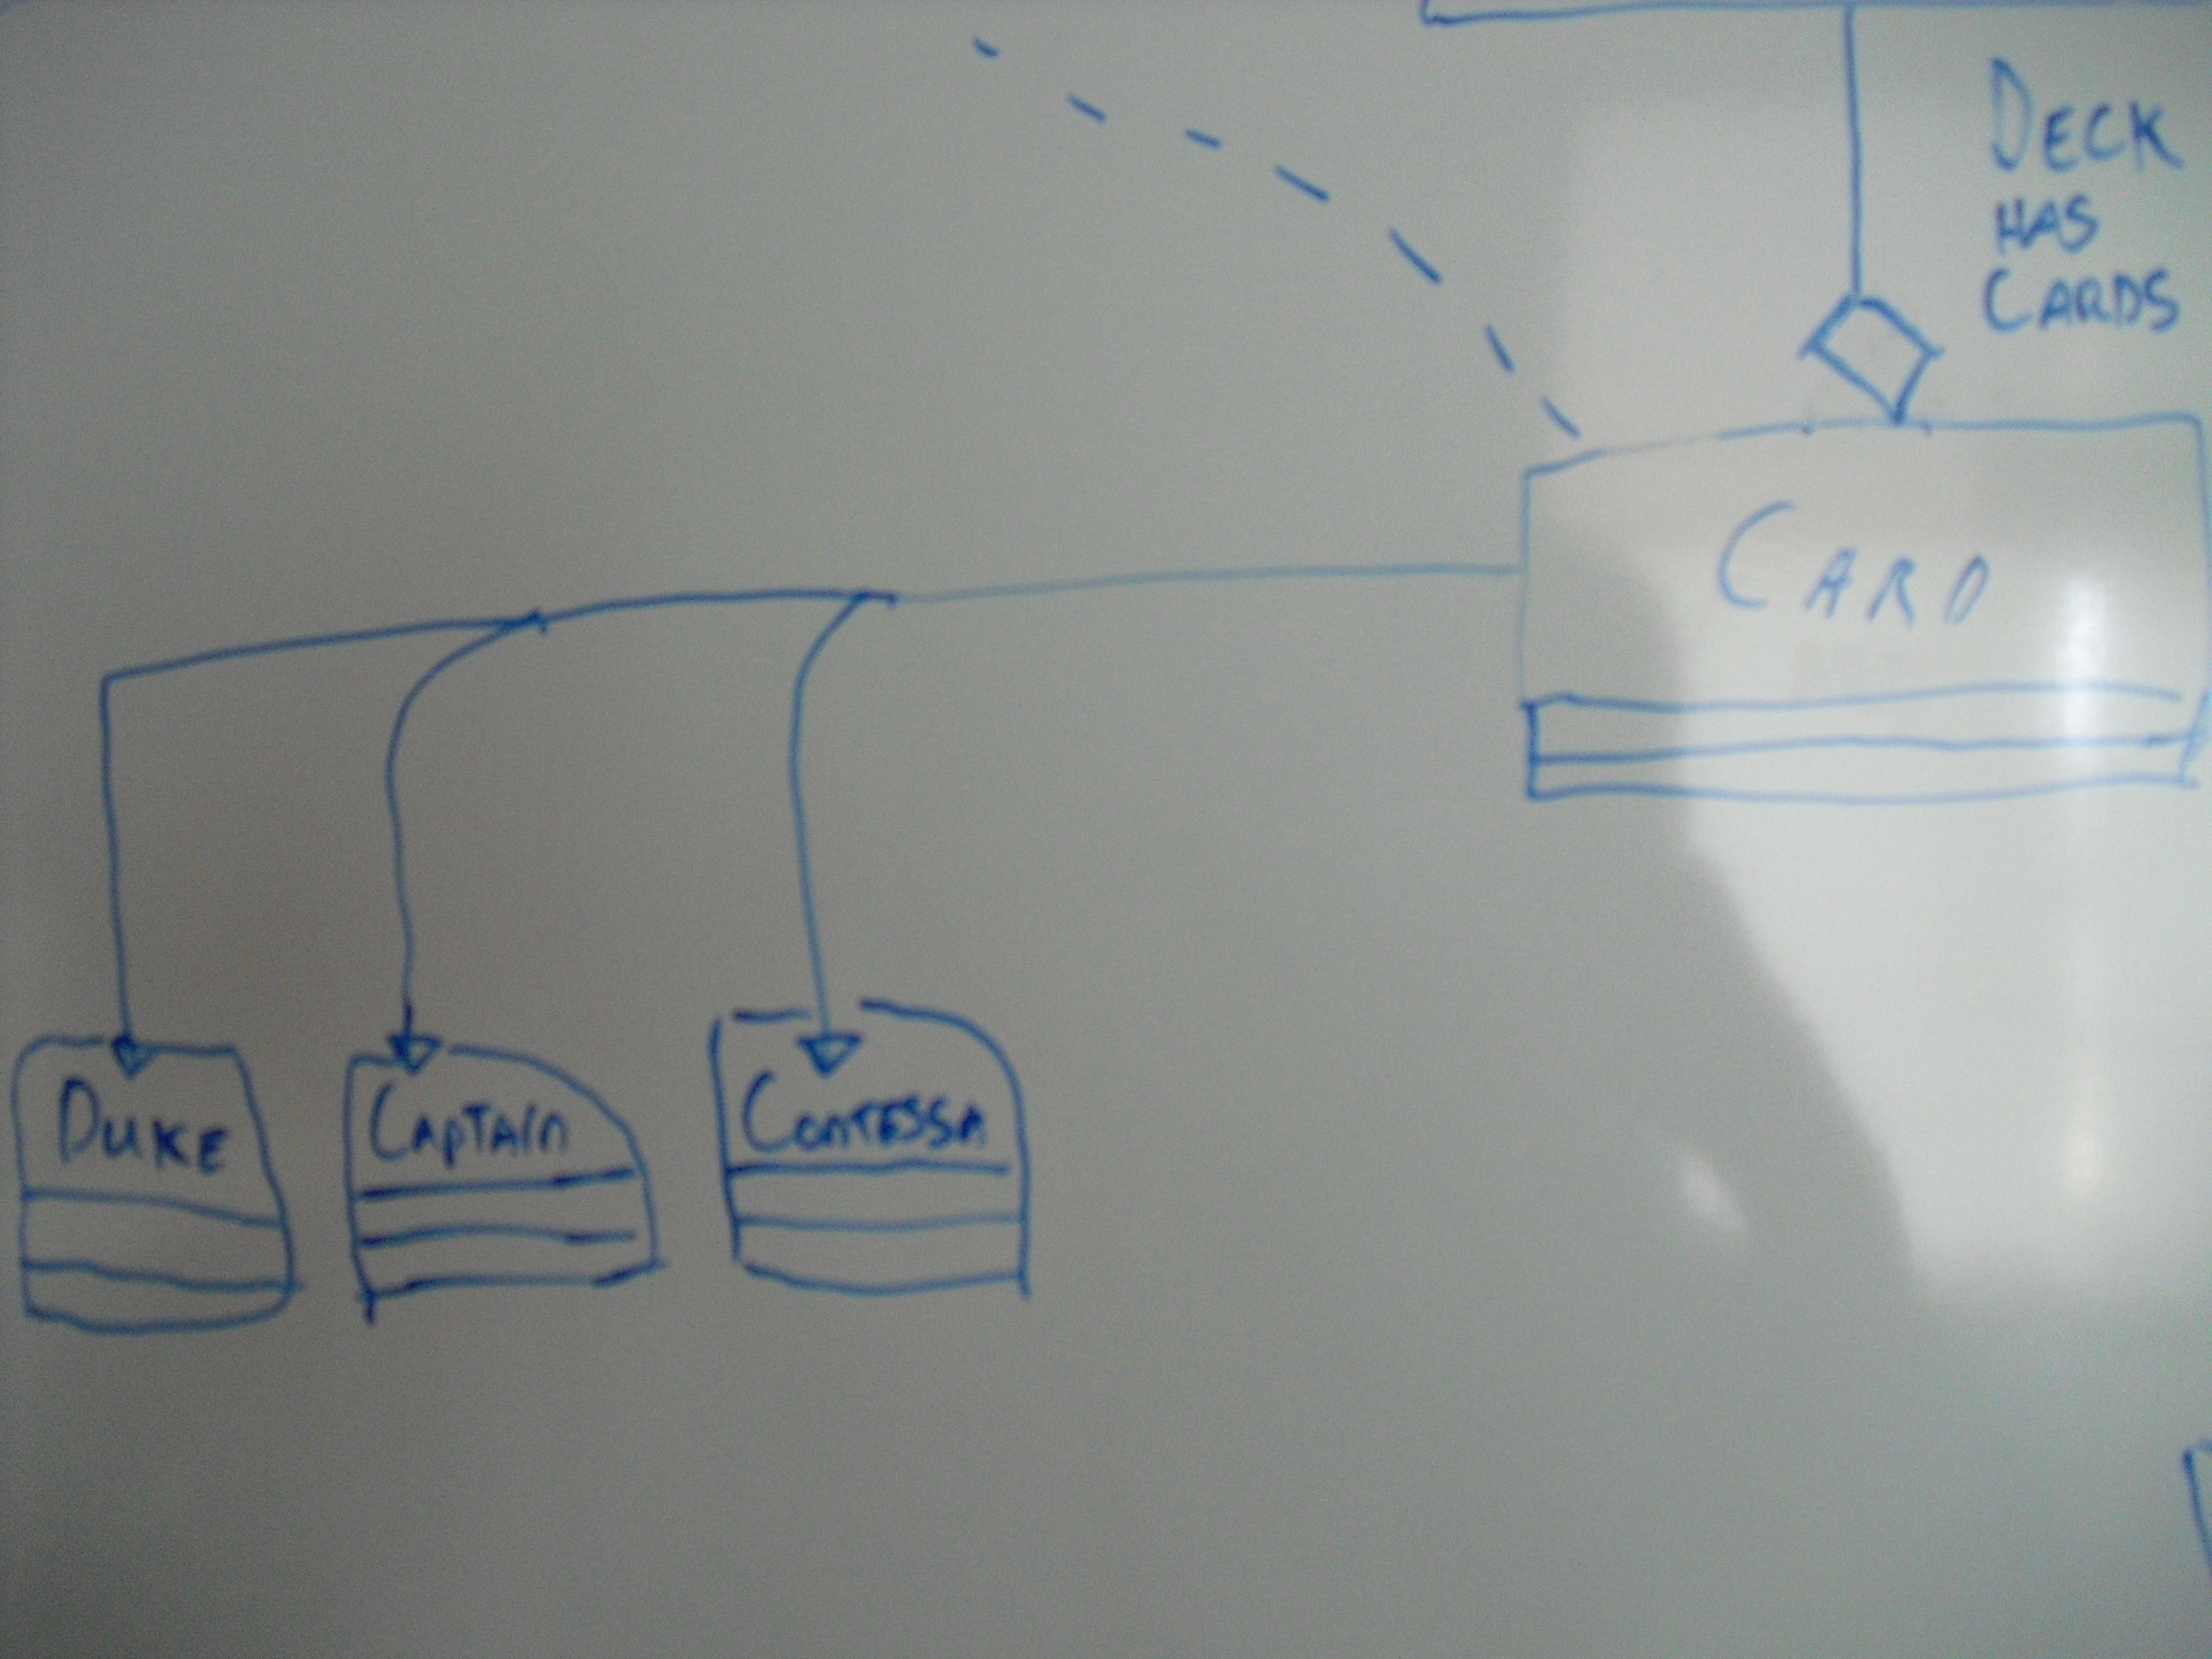 DECK
HAS
CARDS
CARD
DUKE
CAPTAIN
CONTESSA